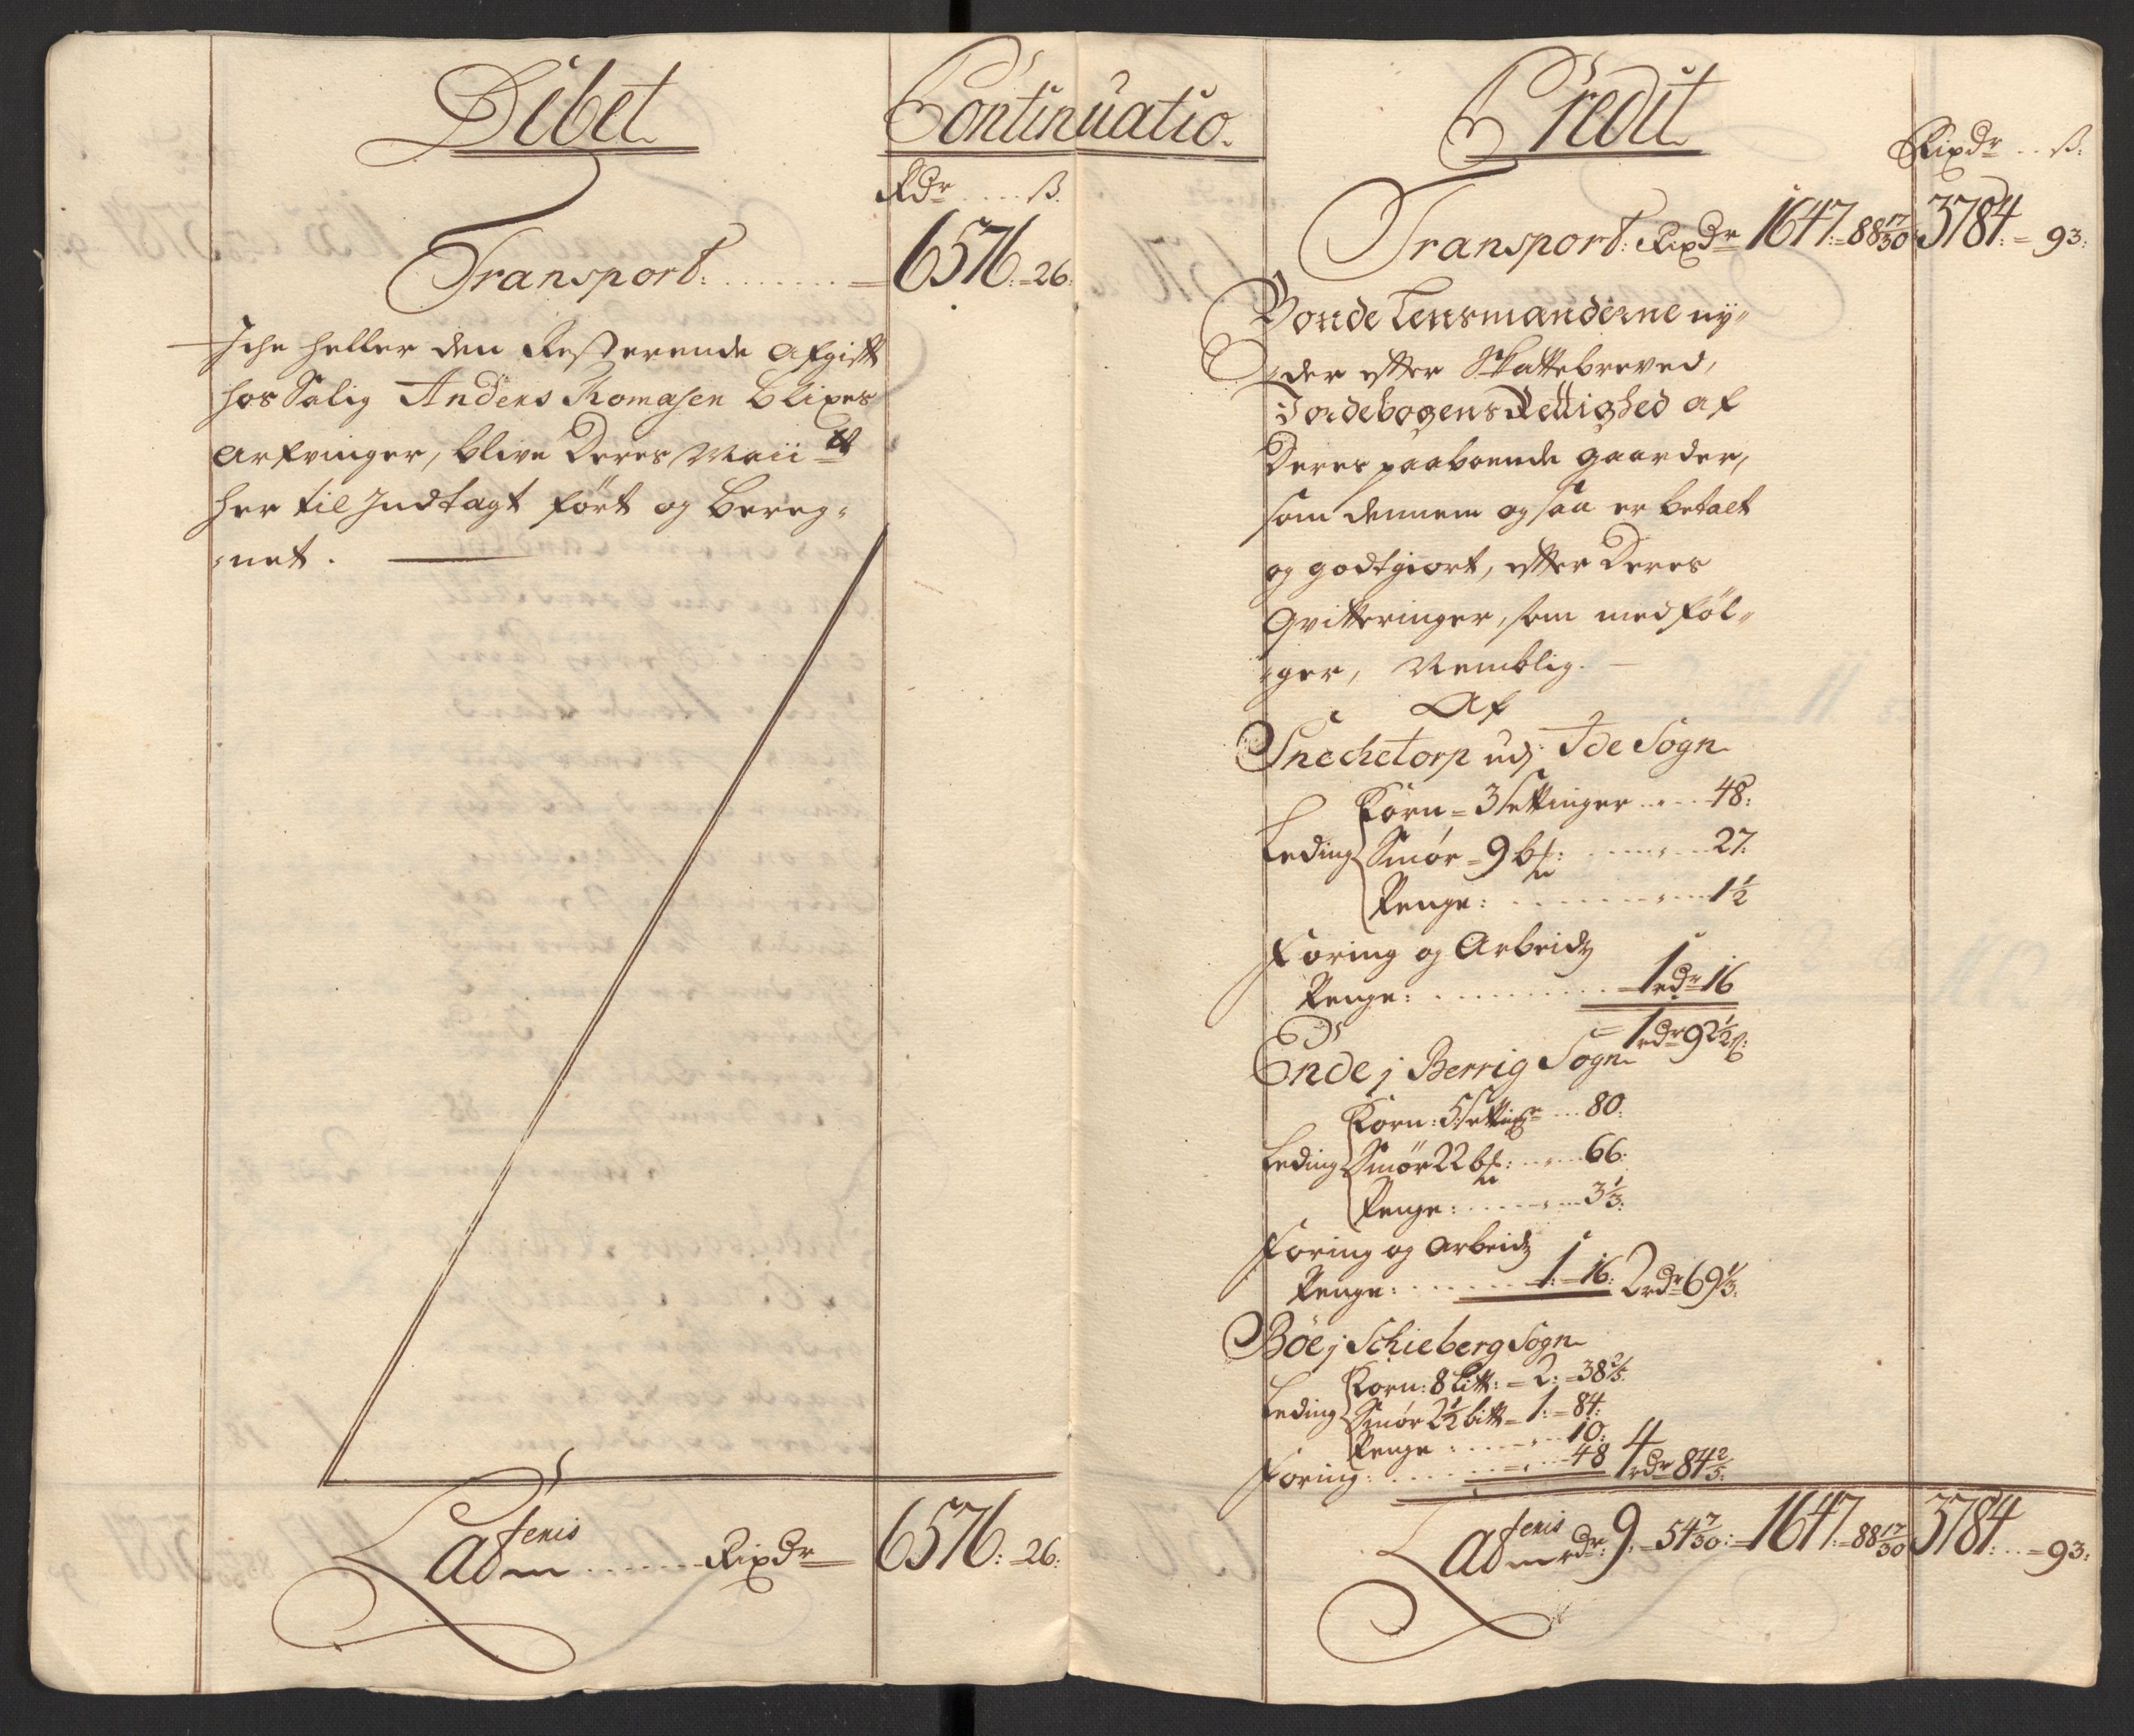 Debet
Continuatio.
Rdr .... ß.
Transport: ........ = 6576: = 26:
Iche heller den Resterende Afgift
hos Salig Anders Thomasen Blixes
Arfvinger, blive Deres Maii tt
her til Indtagt ført og bereg-
-net.
Lateris ...... Rixdr = 6576: = 26:
Credit
Rixdr .. ß:
Transport: Rixdr 1647: = 88 17/30 3784: = 93:
Bonde Lensmænderne ny-
-der efter Skattebreved,
Jordebogens Rettighed af
Deres paaboende gaarder,
som dennem og saa er betalt
og godtgiort, efter Deres
Qvitteringer, som medføl-
-ger, Nemblig.
Af
Snechetorp udj Ide Sogn
Korn = 3 settinger .... 48:
Leding Smør = 9 b: ........ 27:
Penge: ........ 1 1/2
Foring og Arbeidz
Penge: ........ 1 rdr 16
= 1 rdr 92 1/2 ß:
Ende j Berrig Sogn
Korn: 5 settingr ... 80:
Leding Smør 22 b: .... 66:
Penge: ........ 3 1/3:
Foring og arbeidz
Penge: ........ 1: = 16: 2 rdr 69 1/3:
Böe j Schieberg Sogn
Korn: 8 Litt: = 2: = 38 2/5:
Leding Smør 2 1/2 bitt = 1: = 84:
Penge: ...... 10:
Foring: ........ 48 4 rdr 84 2/5:
Lateris rdr: 9: = 54 7/30: = 1647: = 88 17/30 3784: .. = 93: